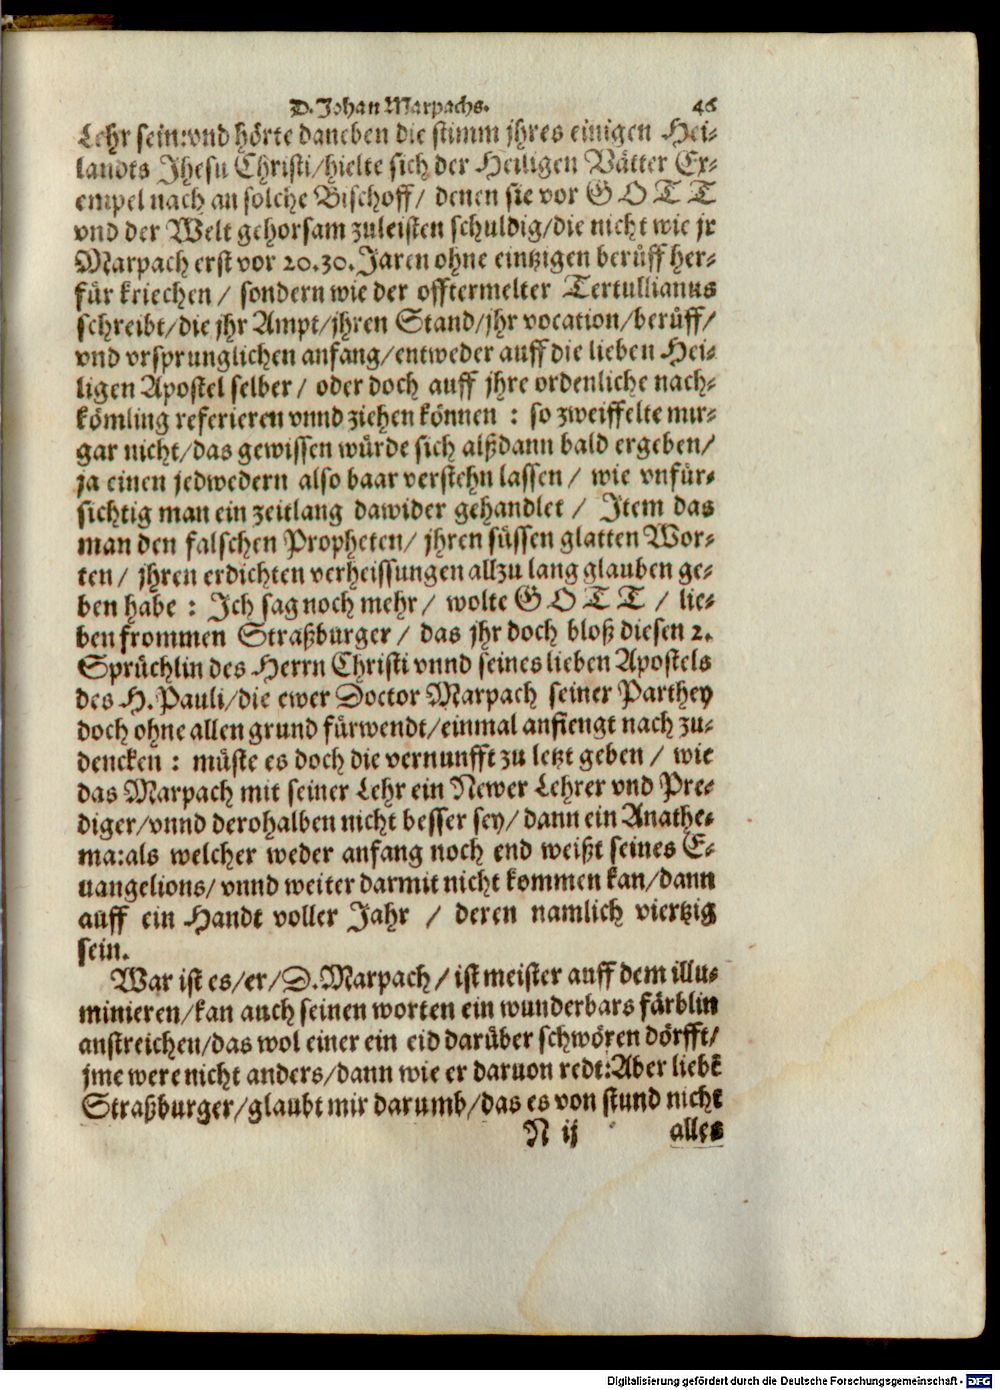 D. Johan Marpachs. 46
Lehr sein: vnd hörte daneben die stimm jhres einigen Hei-
landts Jhesu Christi/hielte sich der Heiligen Vätter Ex-
empel nach an solche Bischoff/ denen sie vor GOTT
vnd der Welt gehorsam zuleisten schuldig/die nicht wie jr
Marpach erst vor 20.30. Jaren ohne eintzigen berůff her-
für kriechen / sondern wie der offtermelter Tertullianus
schreibt/die jhr Ampt/jhren Stand/jhr vocation/berůff/
vnd vrsprunglichen anfang/entweder auff die lieben Hei-
ligen Apostel selber / oder doch auff jhre ordenliche nach-
kömling referieren vnnd ziehen können : so zweiffelte mir
gar nicht/das gewissen würde sich alßdann bald ergeben/
ja einen jedwedern also baar verstehn lassen / wie vnfür-
sichtig man ein zeitlang dawider gehandlet / Item das
man den falschen Propheten/ jhren süssen glatten Wor-
ten / jhren erdichten verheissungen allzu lang glauben ge-
ben habe : Ich sag noch mehr / wolte GOTT / lie-
ben frommen Straßburger / das jhr doch bloß diesen 2.
Sprüchlin des Herrn Christi vnnd seines lieben Apostels
des H. Pauli/die ewer Doctor Marpach seiner Parthey
doch ohne allen grund fürwendt/einmal anfiengt nach zu-
dencken : müste es doch die vernunfft zu letzt geben / wie
das Marpach mit seiner Lehr ein Newer Lehrer vnd Pre-
diger/vnnd derohalben nicht besser sey/ dann ein Anathe-
ma:als welcher weder anfang noch end weißt seines E-
uangelions/ vnnd weiter darmit nicht kommen kan/dann
auff ein Handt voller Jahr / deren namlich viertzig
sein.
War ist es/er/D. Marpach/ ist meister auff dem illu-
minieren/kan auch seinen worten ein wunderbars färblin
anstreichen/das wol einer ein eid darüber schwören dörfft/
jme were nicht anders/dann wie er daruon redt: Aber liebe
Straßburger/glaubt mir darumb/das es von stund nicht
N ij alles
Digitalisierung gefördert durch die Deutsche Forschungsgemeinschaft - DFG